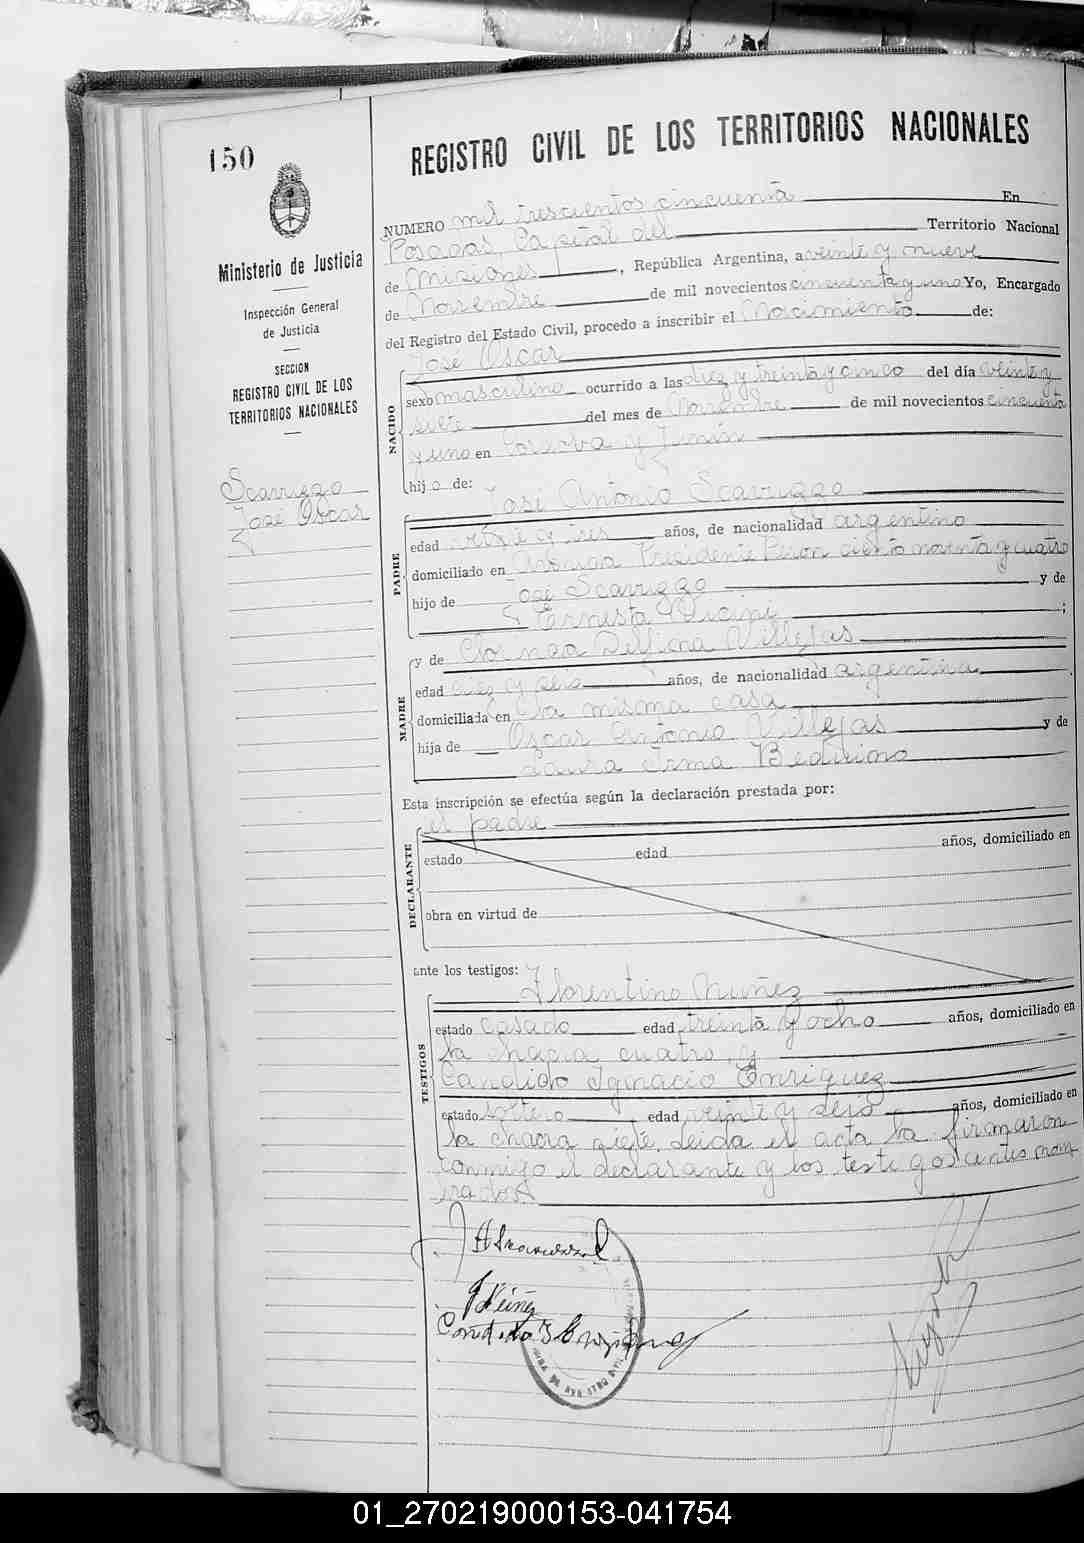 150
REGISTRO CIVIL DE LOS TERRITORIOS NACIONALES
Ministerio de Justicia
Inspección General
de Justicia
SECCION
REGISTRO CIVIL DE LOS
TERRITORIOS NACIONALES
Scavuzzo
José Oscar
NUMERO mil trescientos cincuenta En
Posadas, Capital del Territorio Nacional
de Misiones, República Argentina, a veinte y nueve
de Noviembre de mil novecientos cincuenta y uno Yo, Encargado
del Registro del Estado Civil, procedo a inscribir el Nacimiento de:
José Oscar
NACIDO
sexo masculino ocurrido a las diez y treinta y cinco del día veinte y
siete del mes de Noviembre de mil novecientos cincuenta
y uno en Cordoba y Junín
hijo de:
José Antonio Scavuzzo
PADRE
edad veinte y tres años, de nacionalidad argentino
domiciliado en Avenida Presidente Peron ciento noventa y cuatro
hijo de José Scavuzzo y de
Ernesta Vicini;
y de Delfina Villejas
MADRE
edad diez y seis años, de nacionalidad argentina
domiciliada en la misma casa
hija de Oscar Antonio Villejas y de
Laura Irma
Esta inscripción se efectúa según la declaración prestada por:
el padre
DECLARANTE
estado edad años, domiciliado en
obra en virtud de
ante los testigos:
Florentino Nuñez
TESTIGOS
estado casado edad treinta y ocho años, domiciliado en
la chacra cuatro, y
Candido Ignacio Enriquez
estado soltero edad veinte y seis años, domiciliado en
la chacra siete. Leida el acta la firmaron
conmigo el declarante y los testigos antes nom
brados
F Núñez
Candido I Enriquez
01_270219000153-041754